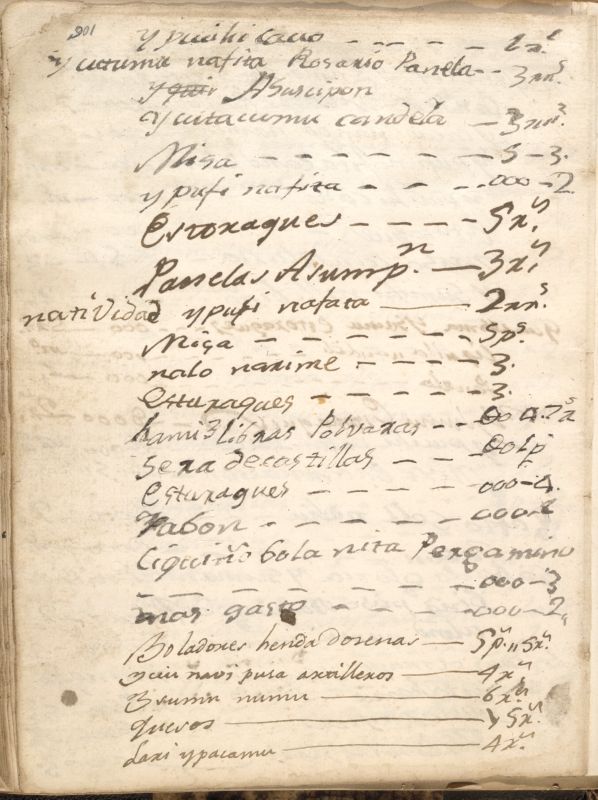 201
y puihi cauo - - - - 1 r.^s
y cutumu nafita Rosario Panela - - 3 rr.^s
y Asuscipon
y cutacumu candela - 3 rr.^s
Misa - - - - - - 5 - 3.
y pufi nafita - - - .000 - 2
Estoraques - - - - 5 r.^s
Panelas Asump.^n - 3 r.^s
natividad y pufi nafata - 2 rr.^s
Miga - - - - - - 5 p.^s
nalo narime - - - - 3.
Esturaques - - - - 3.
hami 3 libras Polvaras - -
sera de castillas - - -
esturaques - - - - 000 - 4.
Xabon - - - - - 000 - 2
bola nita Pergamino
- - - - - - 000 - 3
mas gasto - - - - 000 - 2
Boladores henda dosenas - 5 p.^s 5 r.^s
y ciu navi pusa artilleros - 4 r.^s
3 sumu numu - 6 r.^s
quesos - 5 r.^s
dari y pacamu - 4 r.^s